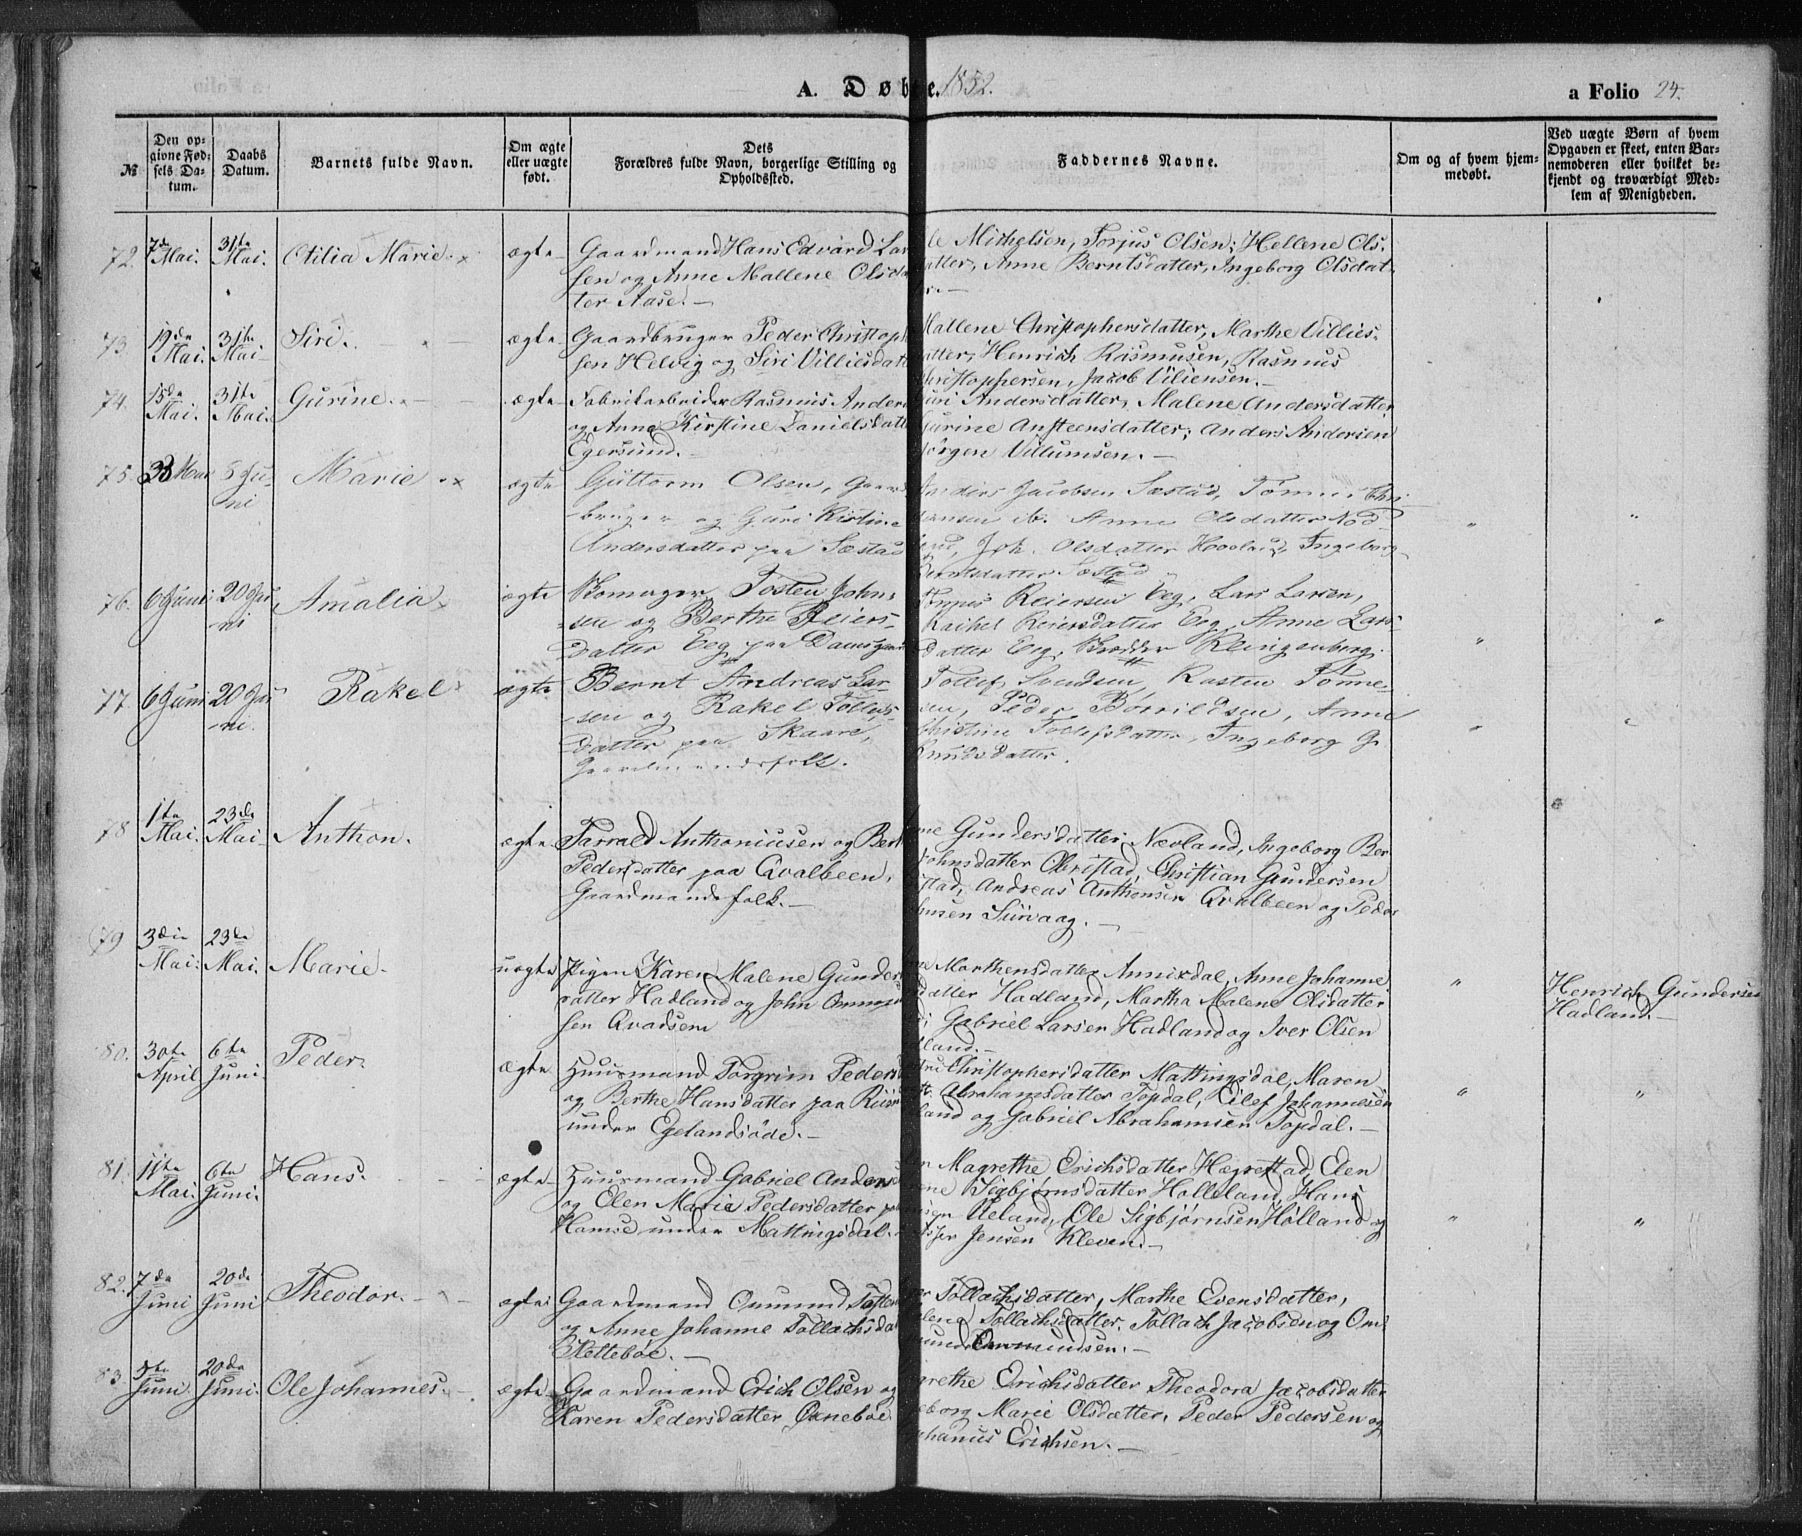 A. Døbte. 1852.
a Folio 24.
№
Den op-
givne Fød-
sels Da-
tum.
Daabs
Datum.
Barnets fulde Navn.
Om ægte
eller uægte
født.
Dets
Forældres fulde Navn, borgerlige Stilling og
Opholdssted.
Faddernes Navne.
Om og af hvem hjem-
medøbt.
Ved uægte Børn af hvem
Opgaven er skeet, enten Bar-
nemoderen eller hvilket be-
kjendt og troværdigt Med-
lem af Menigheden.
72. 7de Mai. 31te Mai. Otilia Marie. ægte
Gaardmand Hans Edvard Lar
sen og Anne Mallene Olsda
ter Aase.
le Mikelsen, Torjus Olsen, Hellene Ols-
atter, Anne Berntsdatter, Ingeborg Olsdat-
r.
73. 19de Mai. 31te Mai Siri. ægte
Gaardbruger Peder Christoph
sen Helvig og Siri Villiesdatt
Mallene Christophersdatter, Marthe Villies-
atter, Henrich Rasmusen, Rasmus
Christophersen, Jacob Viliensen.
74. 15de Mai. 31te Mai. Gurine. ægte
Fabrikarbeider Rasmus Anders
og Anne Kirstine Danielsdatt
Egersund.
uri Andersdatter, Malene Andersdatter
Gurine Ansteensdatter, Anders Andersen
Jørgen Villumsen.
75. Mai 5 Ju-
ni Marie ægte
Guttorm Olsen, Gaard
bruger og Guri Kirstine
Andersdatter paa Sæstad
Anders Jacobsen Sæstad, Tønnes Chri
tensen ib. Anne Olsdatter Nod
land, Joh. Olsdatter Hovland, Ingeborg
Berntsdatter Sæstad
76. 6 Juni 20 Ju-
ni Amalia ægte
Skomager Tosten John-
sen og Berthe Reiers-
datter Eeg paa Damsgaard
Reiersen Eeg, Lars Larsen,
Rachel Reiersdatter Eeg, Anne Lars
datter Eeg, Klingenberg.
77. 6 Juni 20 Ju-
ni. Rakel ægte
Bernt Andreas Lar-
sen og Rakel Tollefs-
datter paa Skaare,
Gaardmandsfolk.
Tollef Svendsen, Karsten Tønne-
sen, Peder Børrildsen, Anne
Christine Tollefsdatter, Ingeborg G.
Knudsdatter.
78 1te Mai. 23de Mai Anthon. ægte
Tarrald Anthoniusen og Bert
Pedersdatter paa Qvalbeen,
Gaardmandsfolk.
ne Gundersdatter Nævland, Ingeborg Ber
Johnsdatter Obrestad, Christian Gundersen
stad, Andreas Anthonsen Qvalbeen og Peder
hnsen Sirevaag.
79 3die Mai. 23de Mai. Marie. uægte
Pigen Karen Malene Gunders
datter Hadland og John Ommund
sen Qvadsem
ne Marthensdatter Annisdal, Anne Johanne
datter Hadland, Martha Malene Olsdatter
Gabriel Larsen Hadland og Iver Olsen
land.
Henrich Gundersen
Hadland.
80. 30te April 6te Juni Peder ægte
Huusmand Torgrim Peders
og Berthe Hansdatter paa
under Egelandsøde.
Christophersdatter Mattingsdal, Maren
Abrahamsdatter Topdal, Eilef Johannesen
land og Gabriel Abrahamsen Topdal.
81. 11te Mai. 6te Juni. Hans. ægte
Huusmand Gabriel Anders
og Elen Marie Pedersdatter paa
under Mattingsdal.
n Magrethe Erichsdatter Hægrestad, Elen
ene Sigbjørnsdatter Holleland, Hans
sen Ueland, Ole Sigbjørnsen Hølland og
Jensen Kleven.
82. 7de Juni 20de Juni Theodor. ægte
Gaardmand Ommund Tosten
og Anne Johanne Tollachsda
Skettebøe.
Tollachsdatter, Marthe Evensdatter,
lene Tollachsdatter, Tollach Jacobsen og Om-
mund Ommundsen.
83. 5te Juni 20de Juni. Ole Johannes. ægte
Gaardmand Erich Olsen og
Karen Pedersdatter Øxnebøe
grethe Erichsdatter Theodora Jacobsdatter
eborg Marie Olsdatter, Peder Pedersen og
hanius Erichsen.